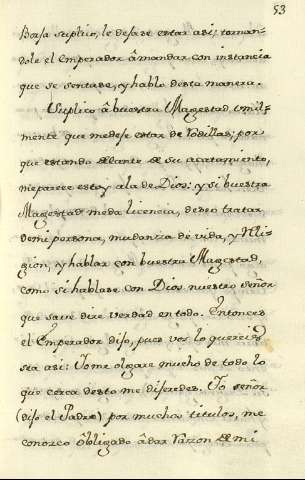 53
Borja suplico, le dejase estar asi; tornan-
dole el Emperador â mandar con instancia
que se sentase, y hablo desta manera.
Suplico â buestra Magestad umil-
mente que medeje estar de Rodillas; por
que estando delante de su acatamiento,
meparece estoy ala de Dios: y si buestra
Magestad meda licencia, deseo tratar
demi persona, mudanza de vida, y Reli-
gion, y hablar con buestra Magestad,
como si hablase con Dios nuestro señor
que save dire verdad en todo. Entonces
el Emperador dijo, pues vos lo quereis
sea asi: Yo me olgare mucho de todo lo
que cerca desto me dijeredes. Yo señor
(dijo el Padre) por muchos titulos, me
conozco ôbligado âdar Razon de mi